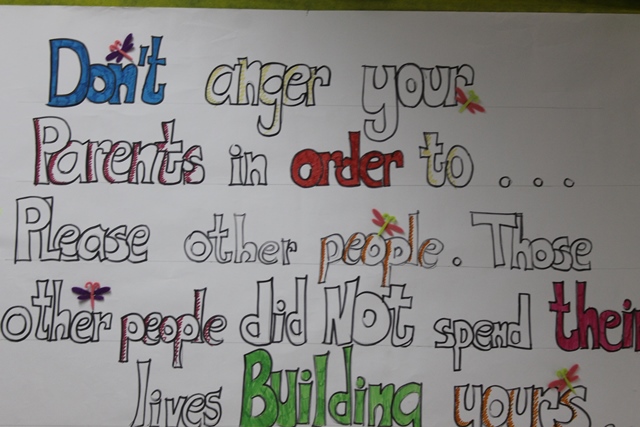 Don't anger your
Parents in order to . . .
Please other people. Those
other people did NOt spend their
lives Building yours.